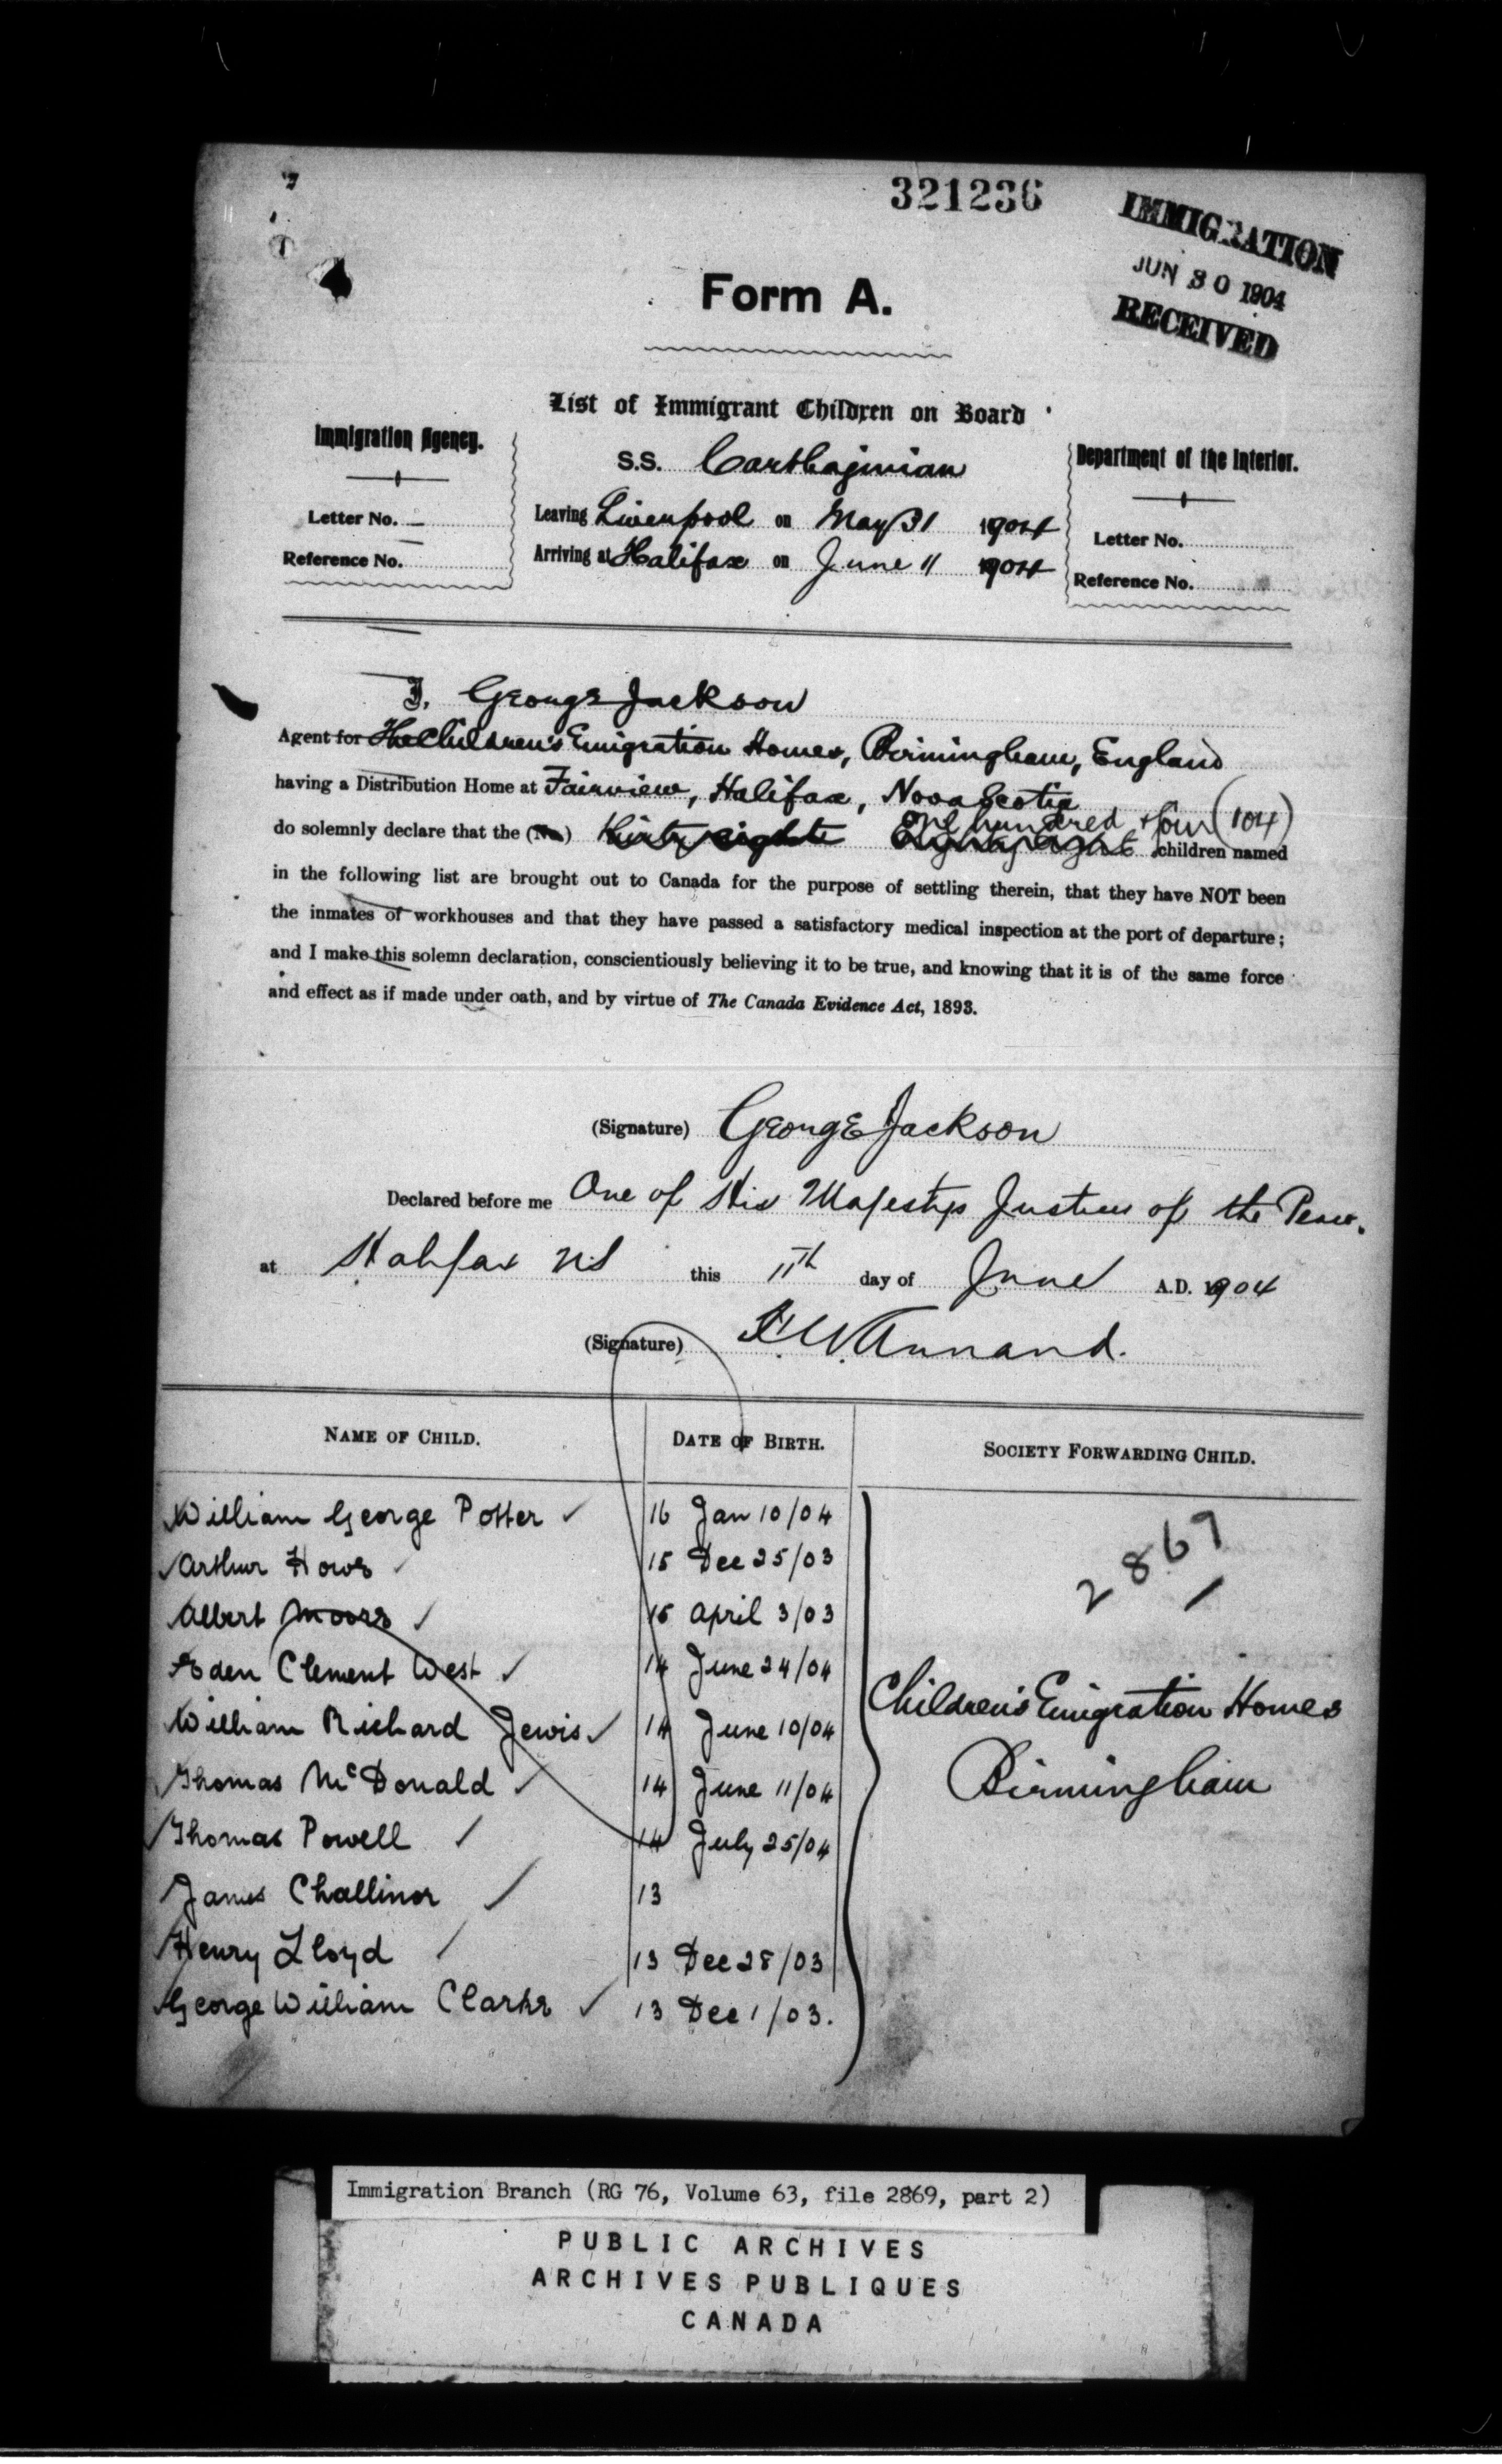 321236
IMMIGRATION
JUN 30 1904
RECEIVED
Form A.
List of Immigrant Children on Board
Immigration Agency.
S.S. Carthaginian
Department of the Interior.
Letter No.
Leaving Liverpool on May 31 1904
Letter No.
Reference No.
Arriving at Halifax on June 11 1904
Reference No.
I, George Jackson
Agent for The Children's Emigration Homes, Birmingham, England
having a Distribution Home at Fairview, Halifax, Nova Scotia
do solemnly declare that the (No.) thirty eight Eighty eight one hundred + four (104) children named
in the following list are brought out to Canada for the purpose of settling therein, that they have NOT been
the inmates of workhouses and that they have passed a satisfactory medical inspection at the port of departure;
and I make this solemn declaration, conscientiously believing it to be true, and knowing that it is of the same force
and effect as if made under oath, and by virtue of The Canada Evidence Act, 1893.
(Signature) George Jackson
Declared before me One of His Majestys Justices of the Peace.
at Halifax NS this 11th day of June A.D. 1904
(Signature) F. W. Annand.
NAME OF CHILD. DATE OF BIRTH. SOCIETY FORWARDING CHILD.
William George Potter 16 Jan 10/04
2869
Arthur Howe 15 Dec 25/03
Albert Moore 15 April 3/03
Eden Clement West 14 June 24/04
Children's Emigration Homes
William Richard Jewis 14 June 10/04
Birmingham
Thomas McDonald 14 June 11/04
Thomas Powell 14 July 25/04
James Challinor 13
Henry Lloyd 13 Dec 28/03
George William Clarke 13 Dec 1/03.
Immigration Branch (RG 76, Volume 63, file 2869, part 2)
PUBLIC ARCHIVES
ARCHIVES PUBLIQUES
CANADA